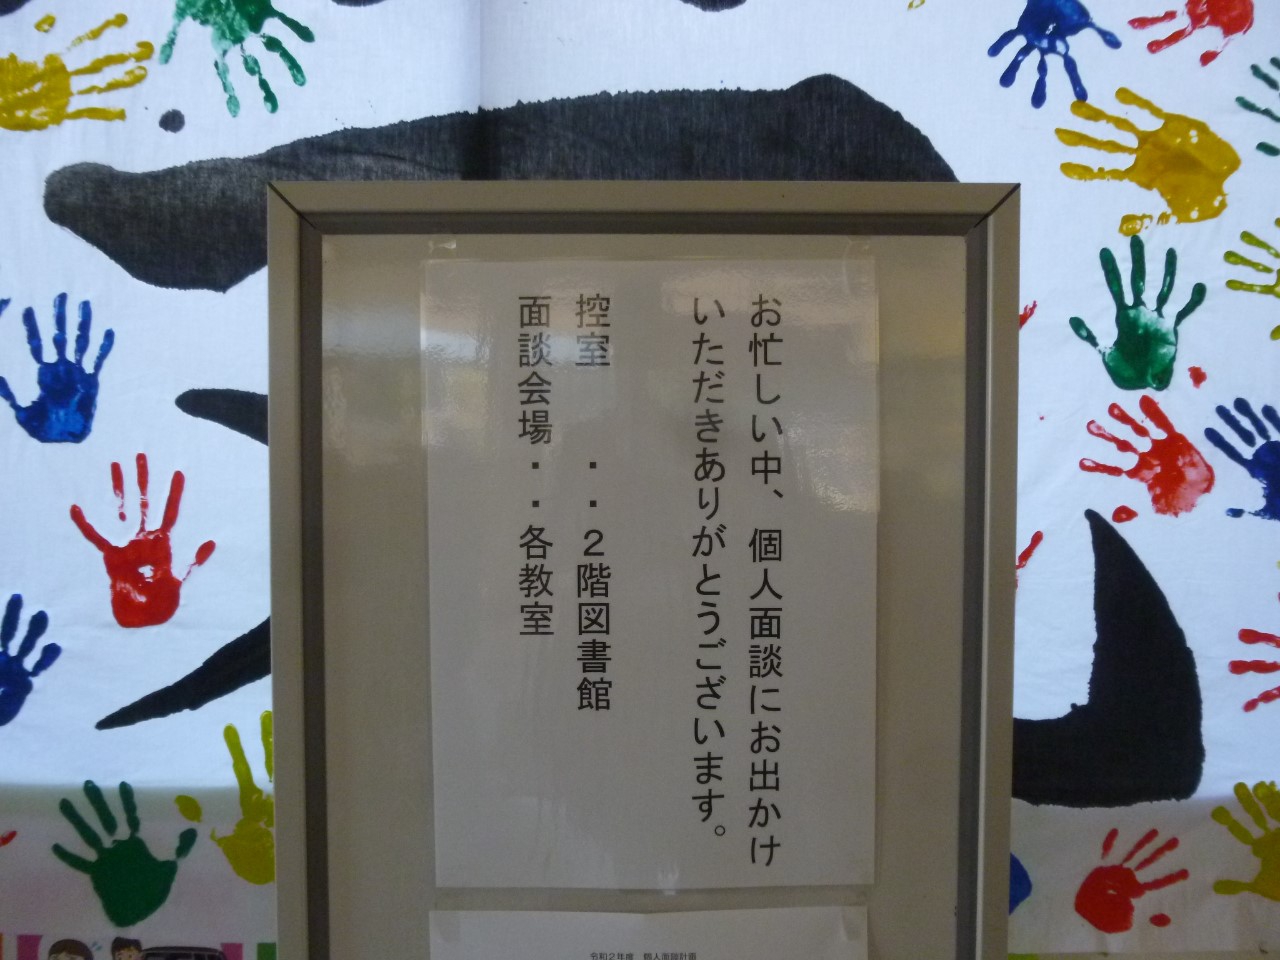 お忙しい中、個人面談にお出かけ
いただきありがとうございます。
控室　　・・２階図書館
面談会場・・各教室
令和２年度　個人面談計画